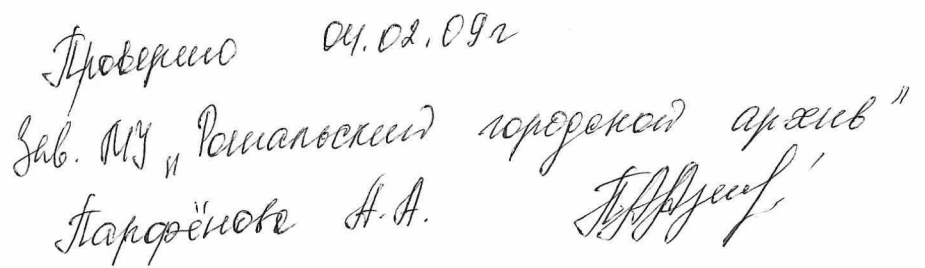 Проверено 04.02.09г
Зав. МУ „Рошальский городской архив”
Парфёнова А.А.